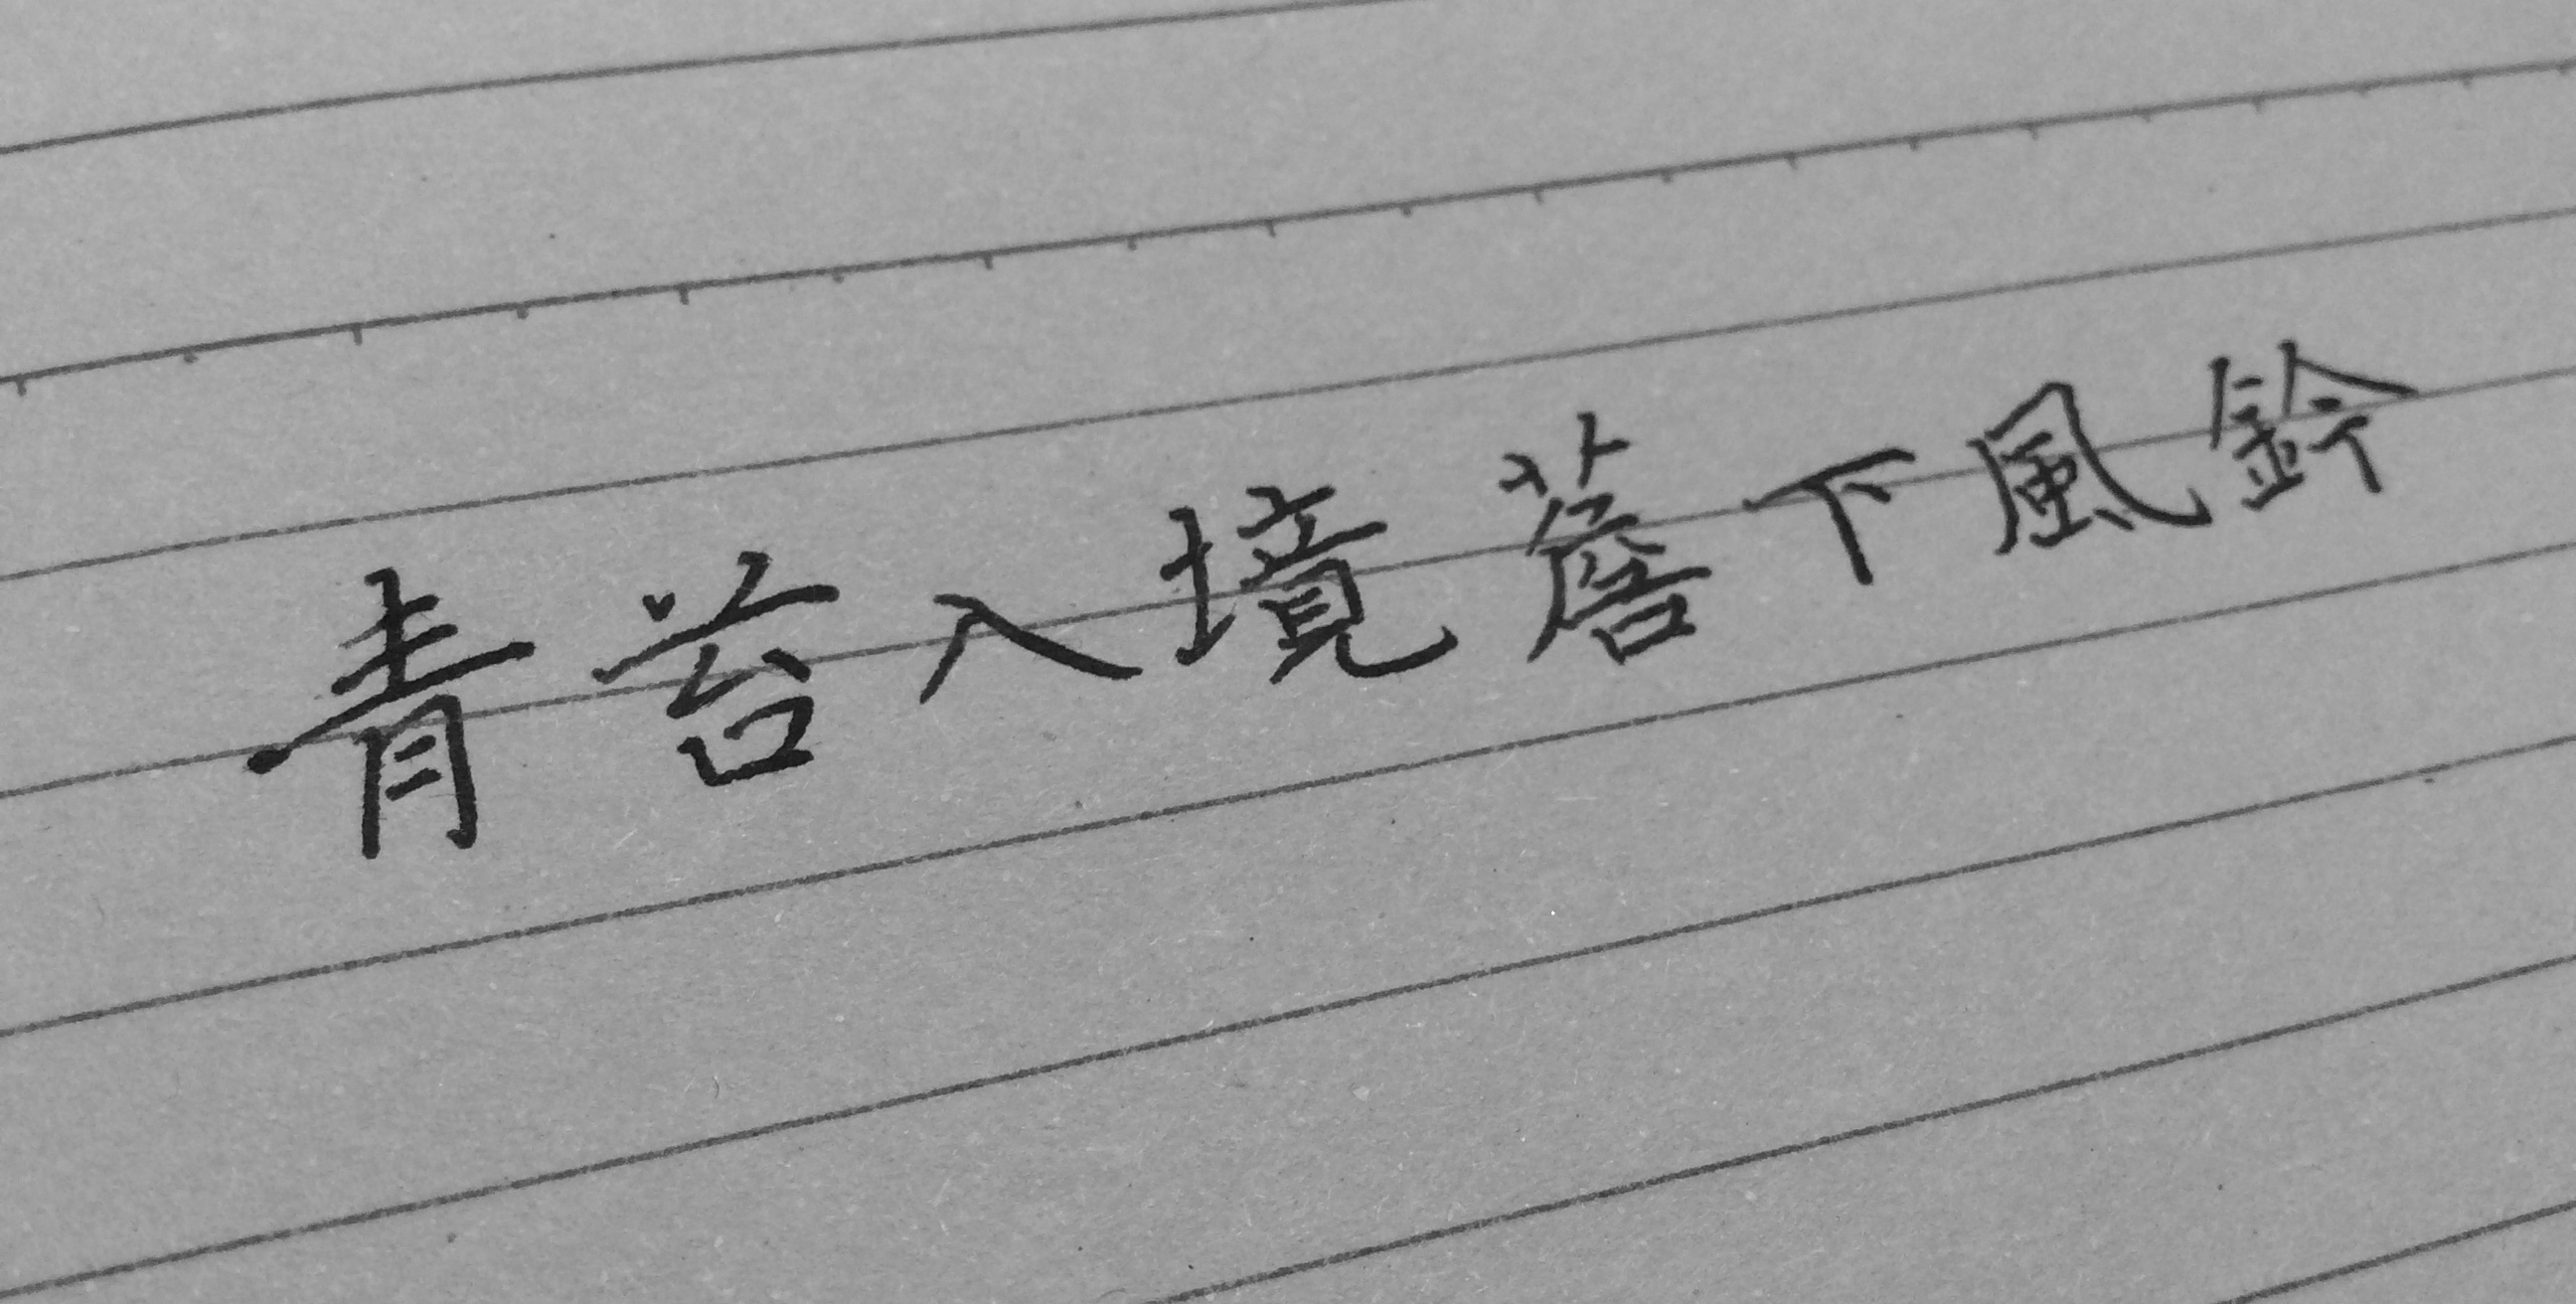 青苔入境薝下風鈴